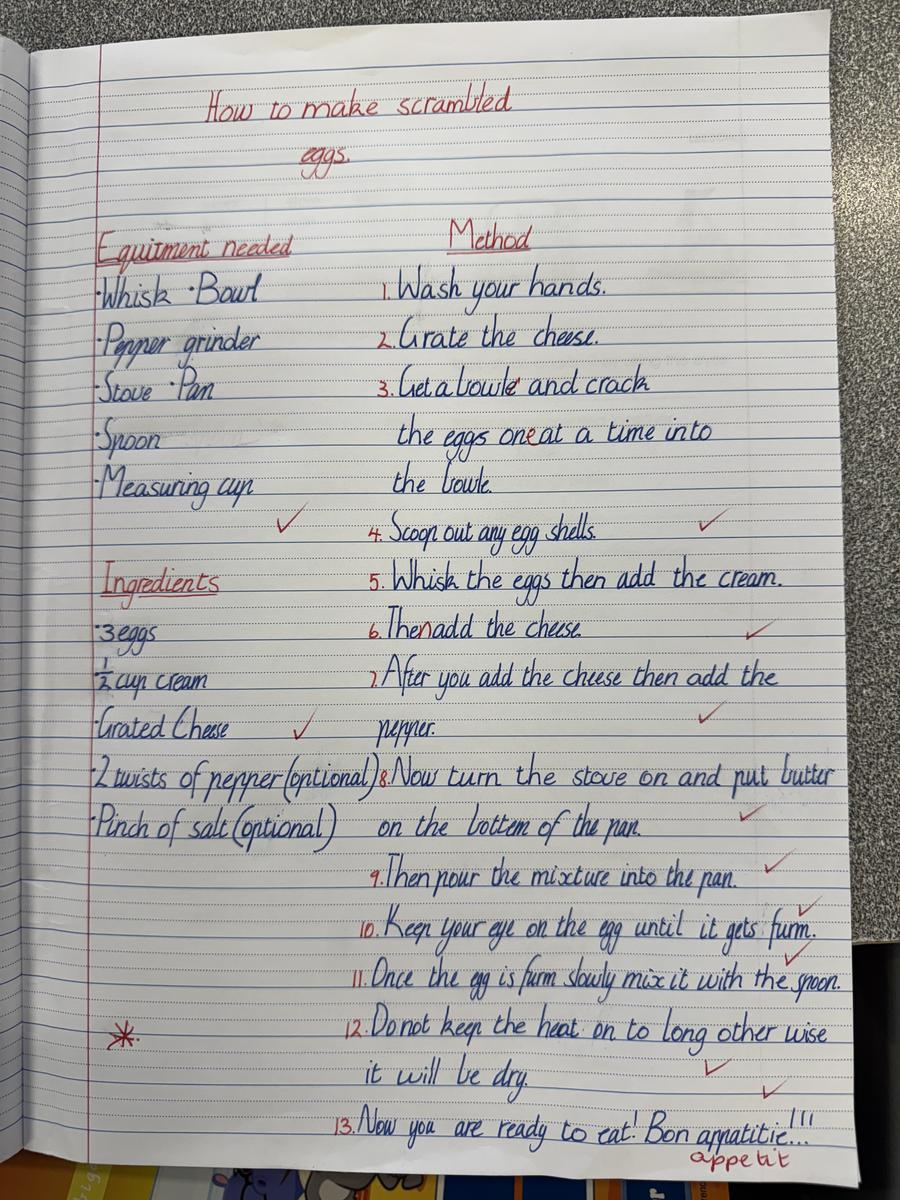 How to make scrambled
eggs.
Equitment needed
·Whisk ·Bowl
·Pepper grinder
·Stove ·Pan
·Spoon
·Measuring cup
Ingredients
·3 eggs
½ cup cream
·Grated Cheese
·2 twists of pepper (optional)
·Pinch of salt (optional)
Method
1. Wash your hands.
2. Grate the cheese.
3. Get a bowle and crack
the eggs one at a time into
the bowle.
4. Scoop out any egg shells.
5. Whisk the eggs then add the cream.
6. Then add the cheese.
7. After you add the cheese then add the
pepper.
8. Now turn the stove on and put butter
on the bottem of the pan.
9. Then pour the mixture into the pan.
10. Keep your eye on the egg until it gets furm.
11. Once the egg is furm slowly mix it with the spoon.
12. Do not keep the heat on to long other wise
it will be dry.
13. Now you are ready to eat! Bon appatitie!!!
appetit